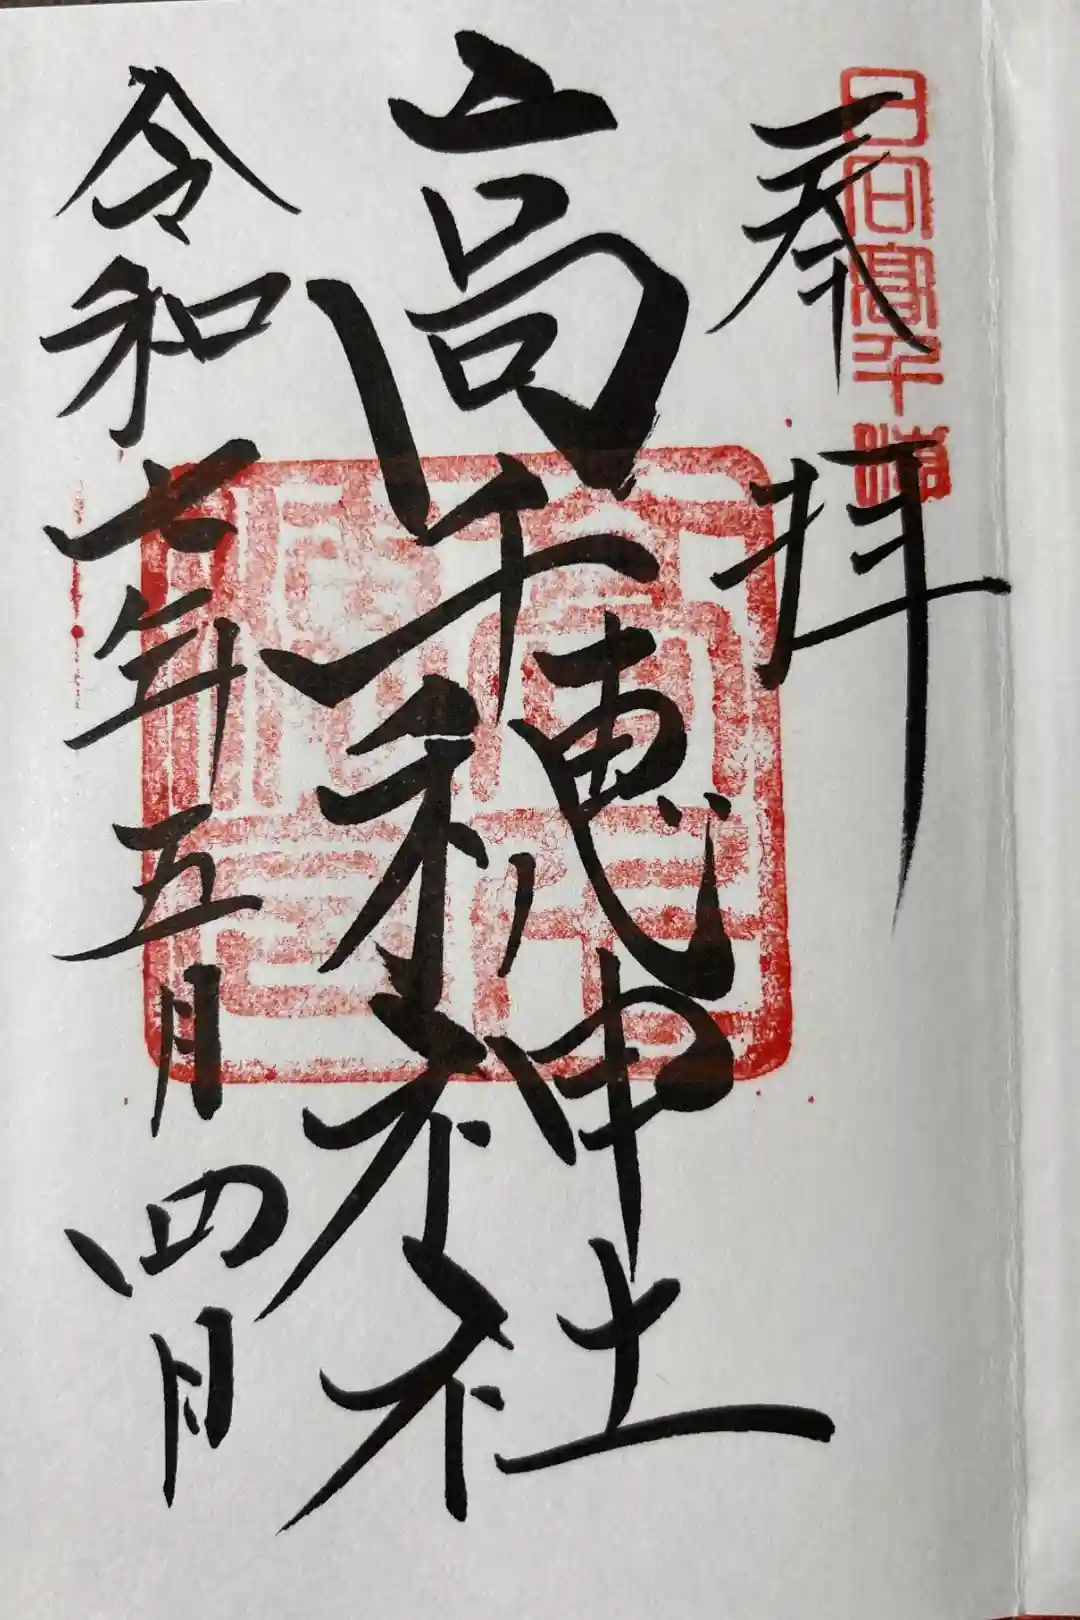 日向高千穂
奉拝
高千穂神社
令和六年五月四日